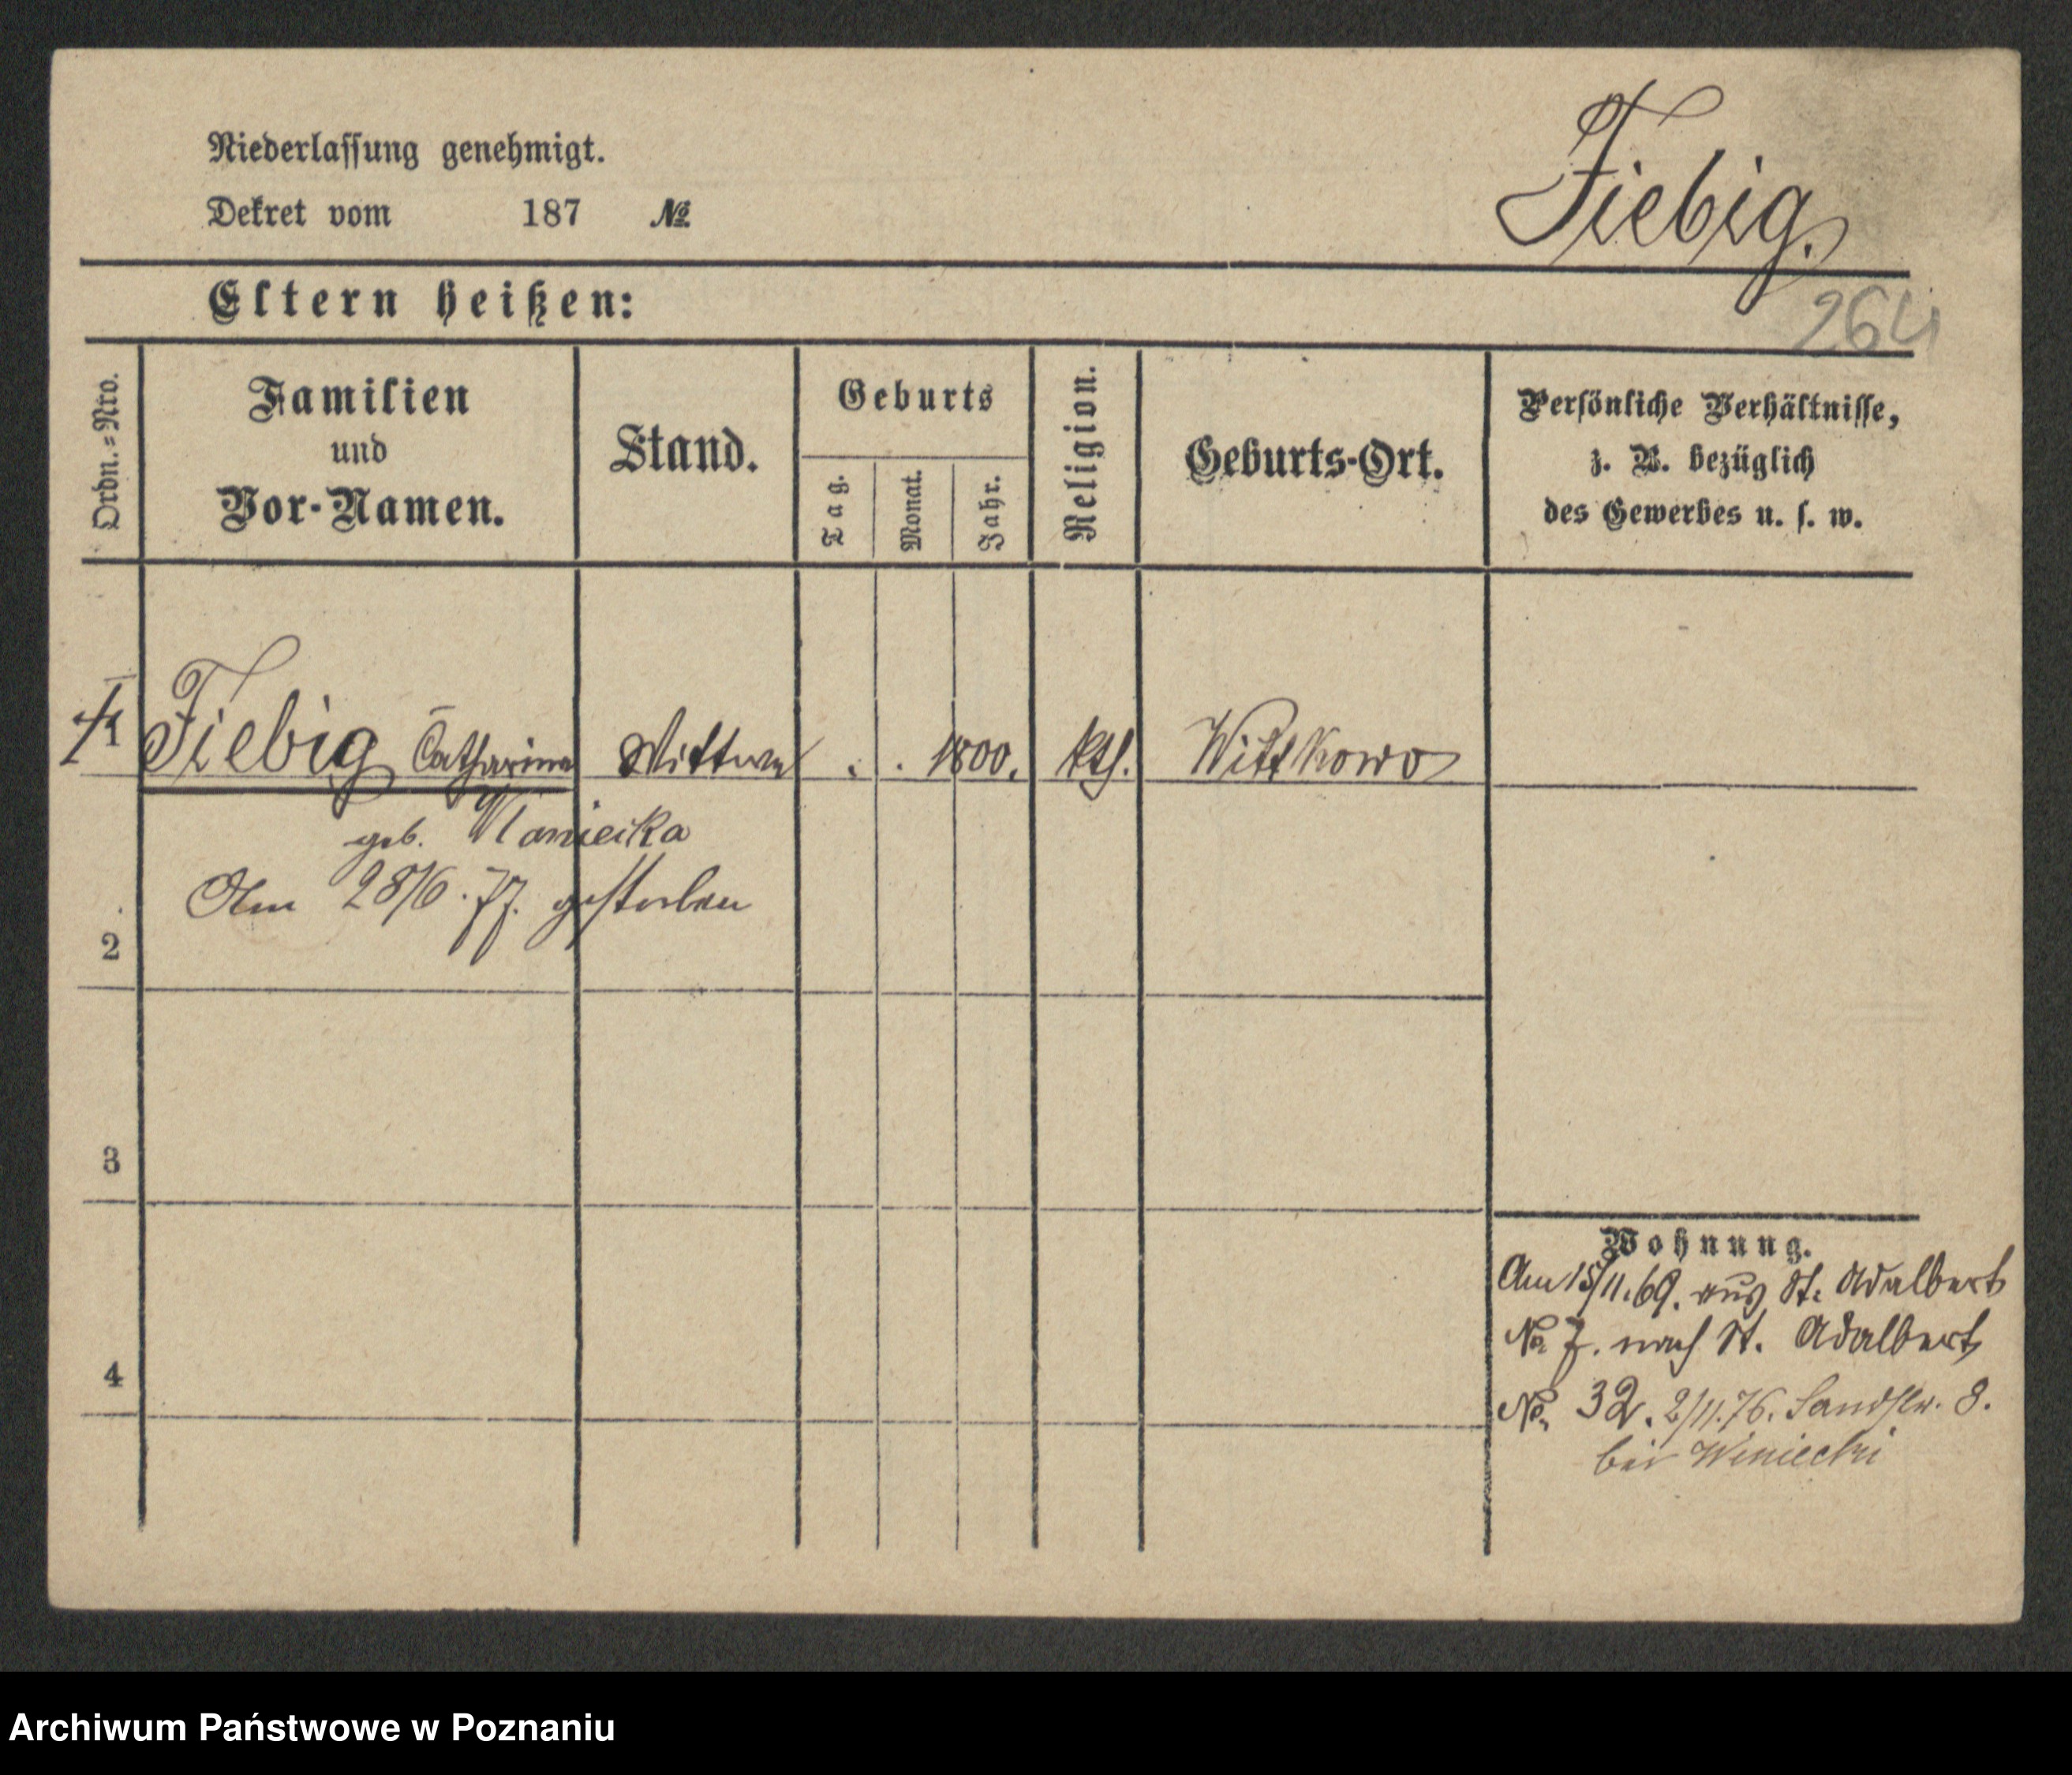 Niederlassung genehmigt.
Dekret vom 187 №
Fiebig.
264
Eltern heißen:
Ordn.=Nro.
Familien
und
Vor-Namen.
Stand.
Geburts
Tag.
Monat.
Jahr.
Religion.
Geburts-Ort.
Persönliche Verhältnisse,
z. B. bezüglich
des Gewerbes u. s. w.
1 Fiebig Catharina Wittwe . . 1800. kth. Wittkowo
geb.
Am 28/6. 77. gestorben
2
3
4
Wohnung.
Am 15/11.69. aus St. Adalbert
No 7. nach St. Adalbert
No. 32. 2/11.76. Sandstr. 8.
bei Winiecki
Archiwum Państwowe w Poznaniu